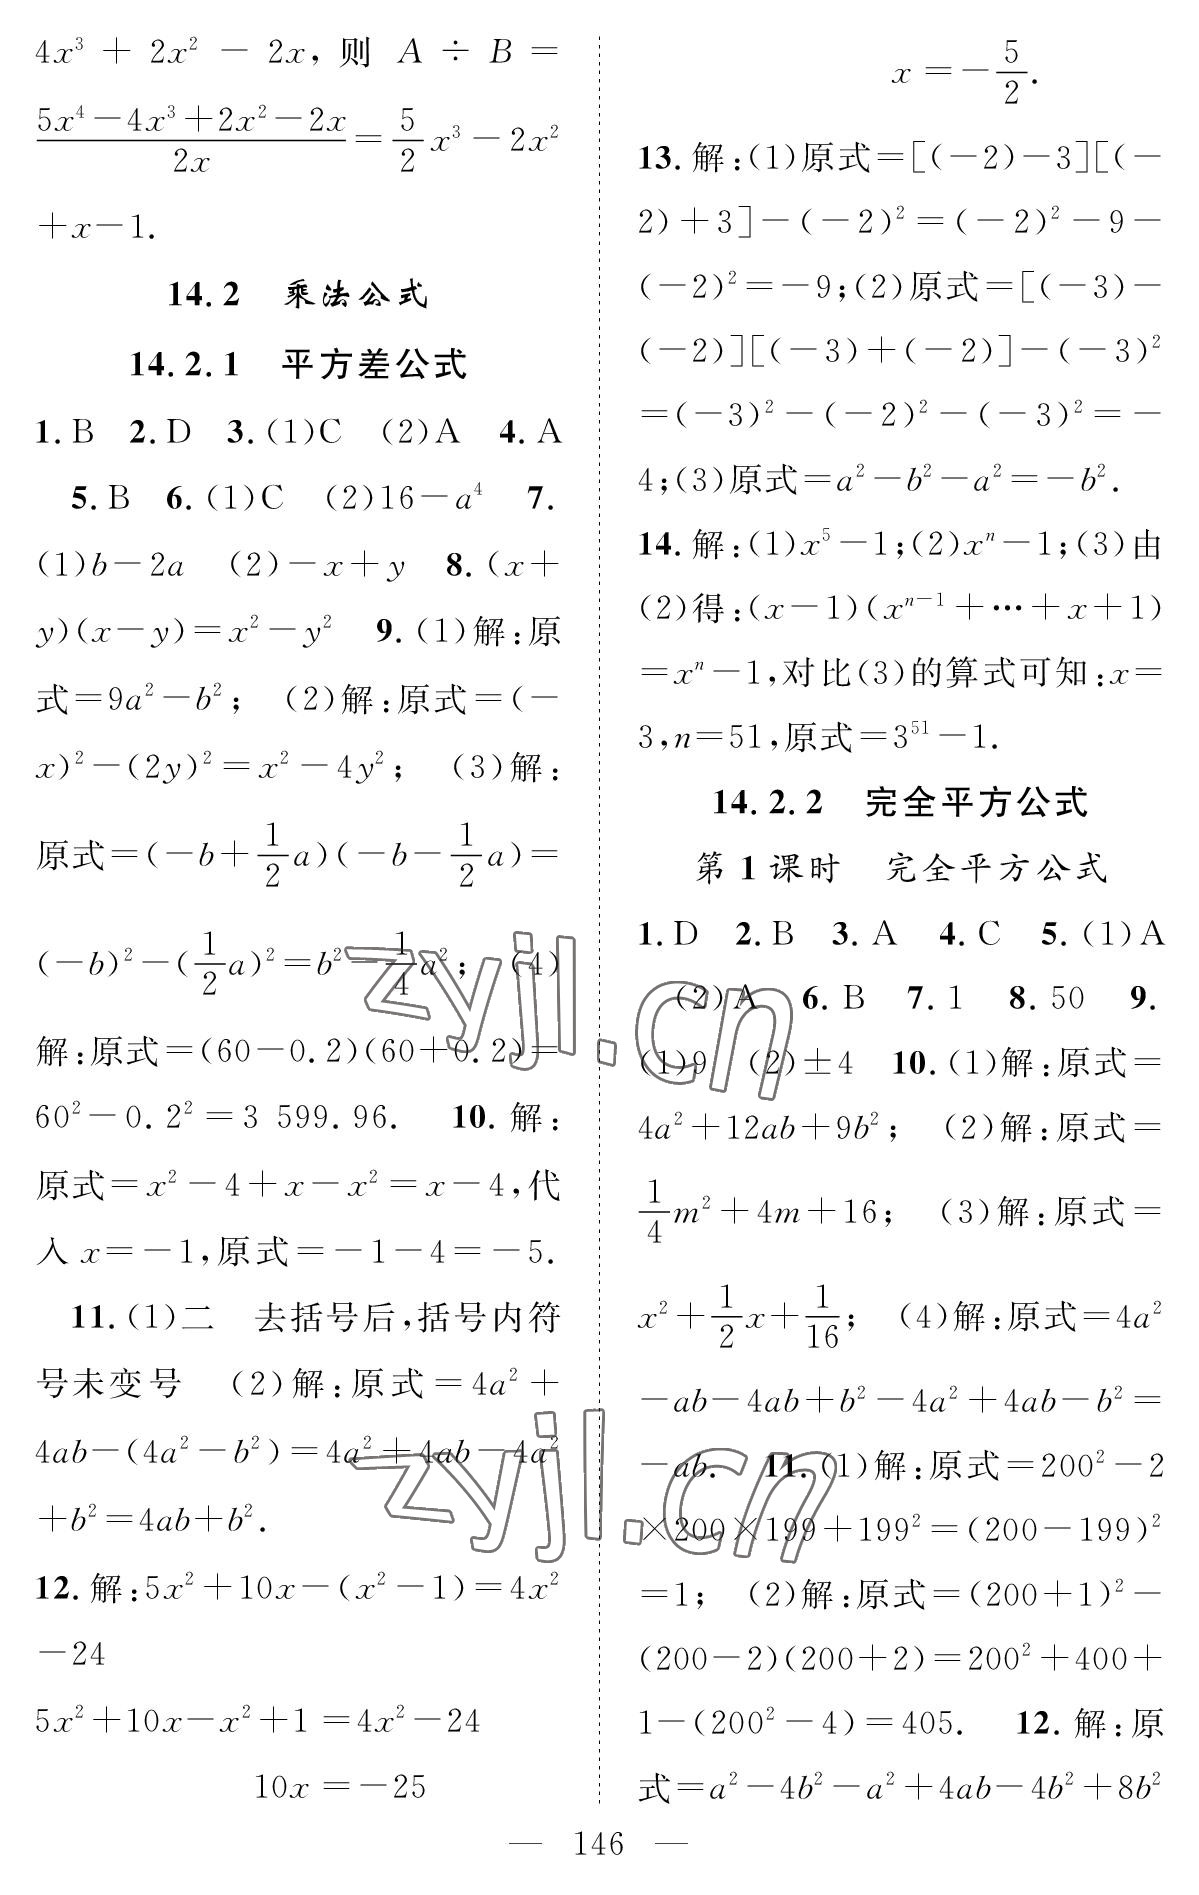 4x³ + 2x² − 2x, 则 A ÷ B =
(5x⁴−4x³+2x²−2x)/(2x) = 5/2 x³ − 2x²
+x−1.
14.2 乘法公式
14.2.1 平方差公式
1.B 2.D 3.(1)C (2)A 4.A
5.B 6.(1)C (2)16−a⁴ 7.
(1)b−2a (2)−x+y 8.(x+
y)(x−y)=x²−y² 9.(1)解:原
式=9a²−b²; (2)解:原式=(−
x)²−(2y)²=x²−4y²; (3)解:
原式=(−b+1/2 a)(−b−1/2 a)=
(−b)²−(1/2 a)²=b²−1/4 a²; (4)
解:原式=(60−0.2)(60+0.2)=
60²−0.2²=3 599.96. 10.解:
原式=x²−4+x−x²=x−4,代
入x=−1,原式=−1−4=−5.
11.(1)二 去括号后,括号内符
号未变号 (2)解:原式=4a²+
4ab−(4a²−b²)=4a²+4ab−4a²
+b²=4ab+b².
12.解:5x²+10x−(x²−1)=4x²
−24
5x²+10x−x²+1=4x²−24
10x=−25
x=−5/2.
13.解:(1)原式=[(−2)−3][(−
2)+3]−(−2)²=(−2)²−9−
(−2)²=−9;(2)原式=[(−3)−
(−2)][(−3)+(−2)]−(−3)²
=(−3)²−(−2)²−(−3)²=−
4;(3)原式=a²−b²−a²=−b².
14.解:(1)x⁵−1;(2)xⁿ−1;(3)由
(2)得:(x−1)(xⁿ⁻¹+…+x+1)
=xⁿ−1,对比(3)的算式可知:x=
3,n=51,原式=3⁵¹−1.
14.2.2 完全平方公式
第1课时 完全平方公式
1.D 2.B 3.A 4.C 5.(1)A
(2)A 6.B 7.1 8.50 9.
(1)9 (2)±4 10.(1)解:原式=
4a²+12ab+9b²; (2)解:原式=
1/4 m²+4m+16; (3)解:原式=
x²+1/2 x+1/16; (4)解:原式=4a²
−ab−4ab+b²−4a²+4ab−b²=
−ab. 11.(1)解:原式=200²−2
×200×199+199²=(200−199)²
=1; (2)解:原式=(200+1)²−
(200−2)(200+2)=200²+400+
1−(200²−4)=405. 12.解:原
式=a²−4b²−a²+4ab−4b²+8b²
— 146 —
zyjl.cn
zyjl.cn